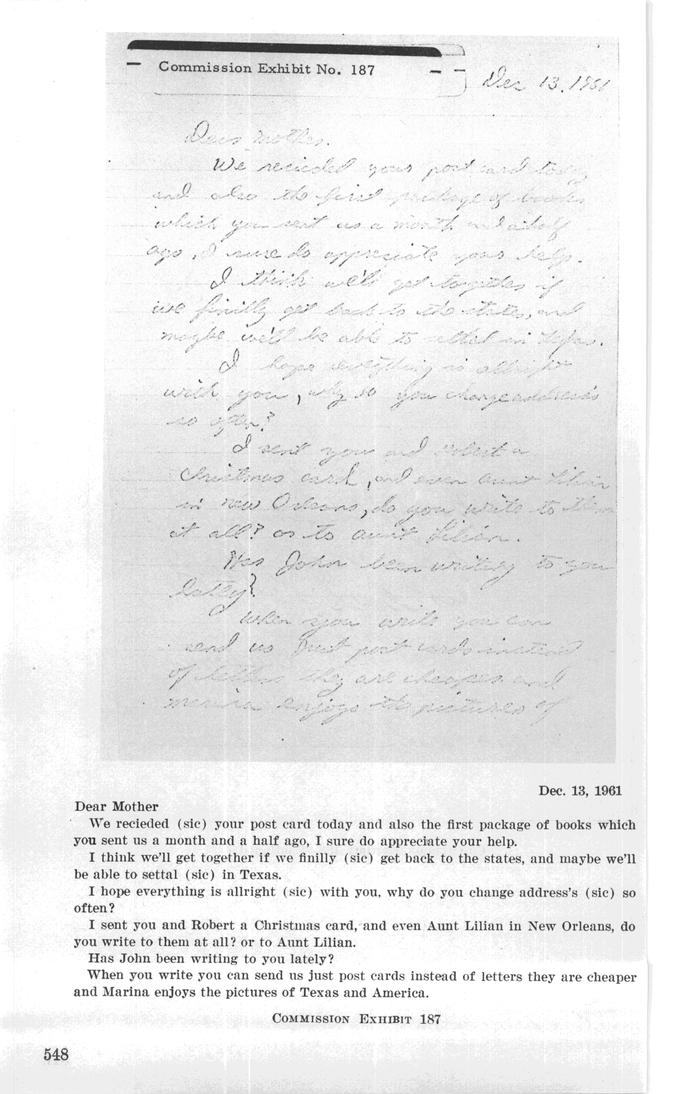 Commission Exhibit No. 187
Dec 13, 1961
Dear Mother.
We recieded your post card today
and also the first package of books
which you sent us a month and a half
ago, I sure do appreciate your help.
I think we'll get together if
we finilly get back to the states, and
maybe we'll be able to settal in Texas.
I hope everything is allright
with you, why do you change address's
so often?
I sent you and Robert a
Christmas card, and even aunt Lilian
in new Orleans, do you write to them
at all? or to aunt Lilian.
Has John been writing to you
lately?
When you write you can
send us just post cards instead
of letters they are cheaper and
marina enjoys the pictures of
Dec. 13, 1961
Dear Mother
We recieded (sic) your post card today and also the first package of books which
you sent us a month and a half ago, I sure do appreciate your help.
I think we'll get together if we finilly (sic) get back to the states, and maybe we'll
be able to settal (sic) in Texas.
I hope everything is allright (sic) with you, why do you change address's (sic) so
often?
I sent you and Robert a Christmas card, and even Aunt Lilian in New Orleans, do
you write to them at all? or to Aunt Lilian.
Has John been writing to you lately?
When you write you can send us just post cards instead of letters they are cheaper
and Marina enjoys the pictures of Texas and America.
COMMISSION EXHIBIT 187
548